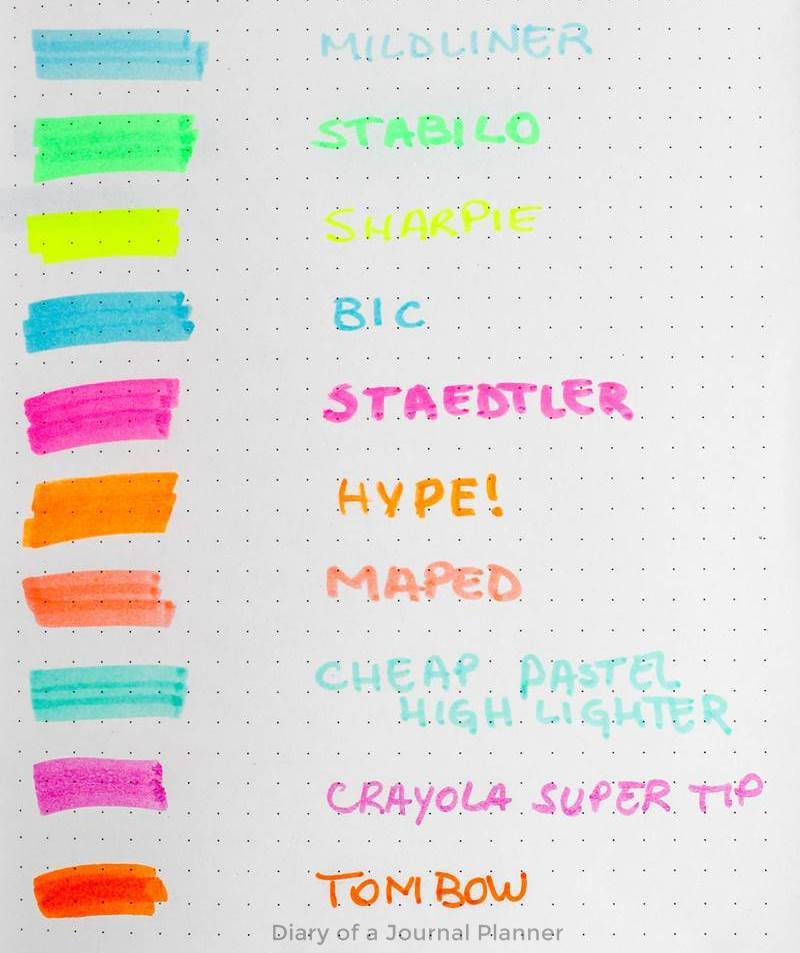 MILDLINER
STABILO
SHARPIE
BIC
STAEDTLER
HYPE!
MAPED
CHEAP PASTEL
HIGHLIGHTER
CRAYOLA SUPER TIP
TOMBOW
Diary of a Journal Planner